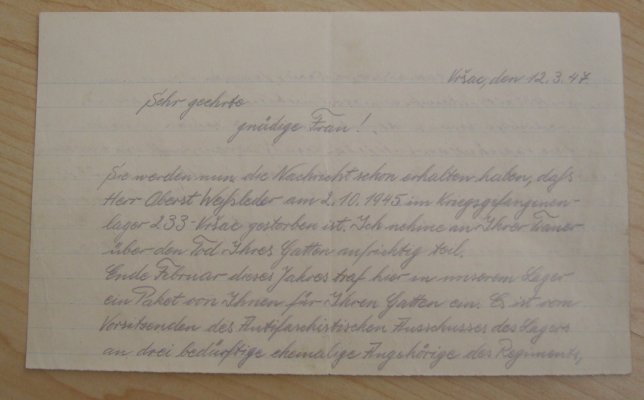 Vršac, den 12.3.47.
Sehr geehrte
gnädige Frau!
Sie werden nun die Nachricht schon erhalten haben, daß
Herr Oberst Weßleder am 2.10.1945 im Kriegsgefangenen-
lager 233-Vršac gestorben ist. Ich nehme an Ihrer Trauer
über den Tod Ihres Gatten aufrichtig teil.
Ende Februar dieses Jahres traf hier in unserem Lager
ein Paket von Ihnen für Ihren Gatten ein. Es ist vom
Vorsitzenden des Antifaschistischen Ausschusses des Lagers
an drei bedürftige ehemalige Angehörige des Regiments,